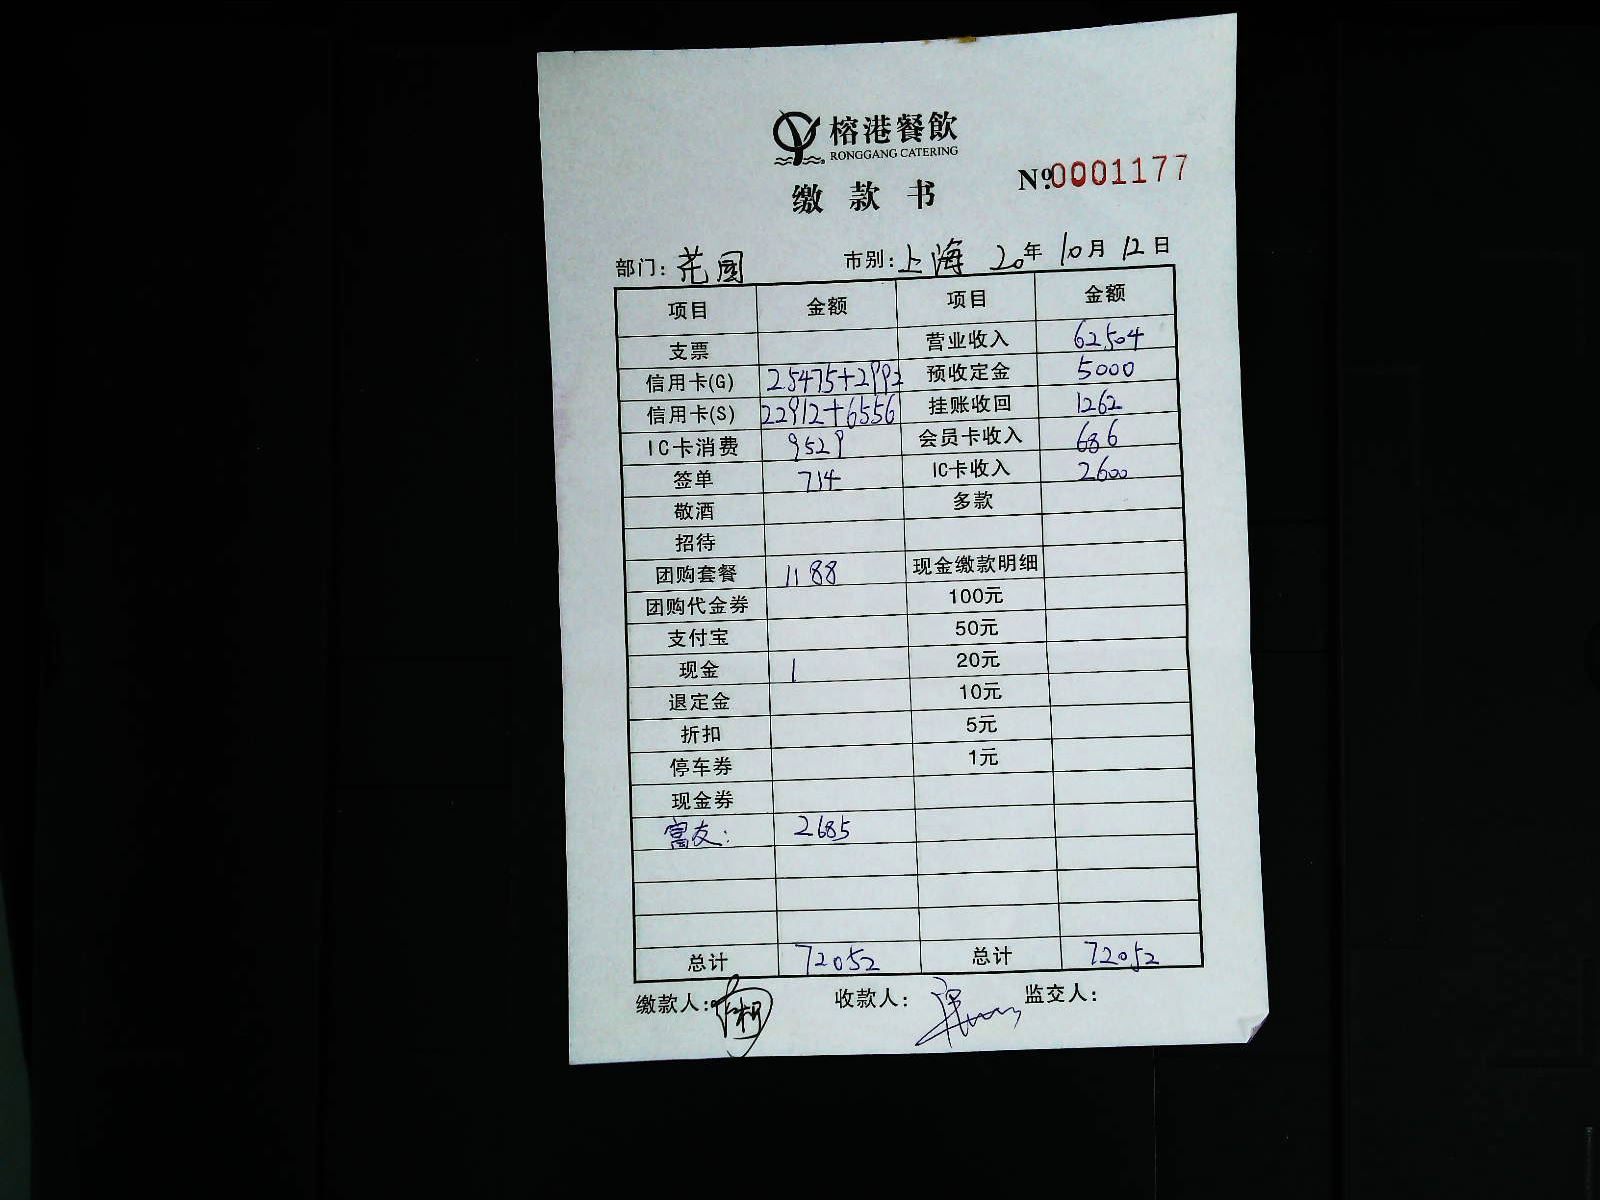 榕港餐飲
RONGGANG CATERING
缴款书 №0001177
部门：花园 市别：上海 20年10月12日
项目 金额 项目 金额
支票 营业收入 62504
信用卡(G) 25475+2992 预收定金 5000
信用卡(S) 22912+6556 挂账收回 1262
IC卡消费 9529 会员卡收入 686
签单 714 IC卡收入 2600
敬酒 多款
招待
团购套餐 1188 现金缴款明细
团购代金券 100元
支付宝 50元
现金 1 20元
退定金 10元
折扣 5元
停车券 1元
现金券
富友： 2685
总计 72052 总计 72052
缴款人： 收款人： 监交人：